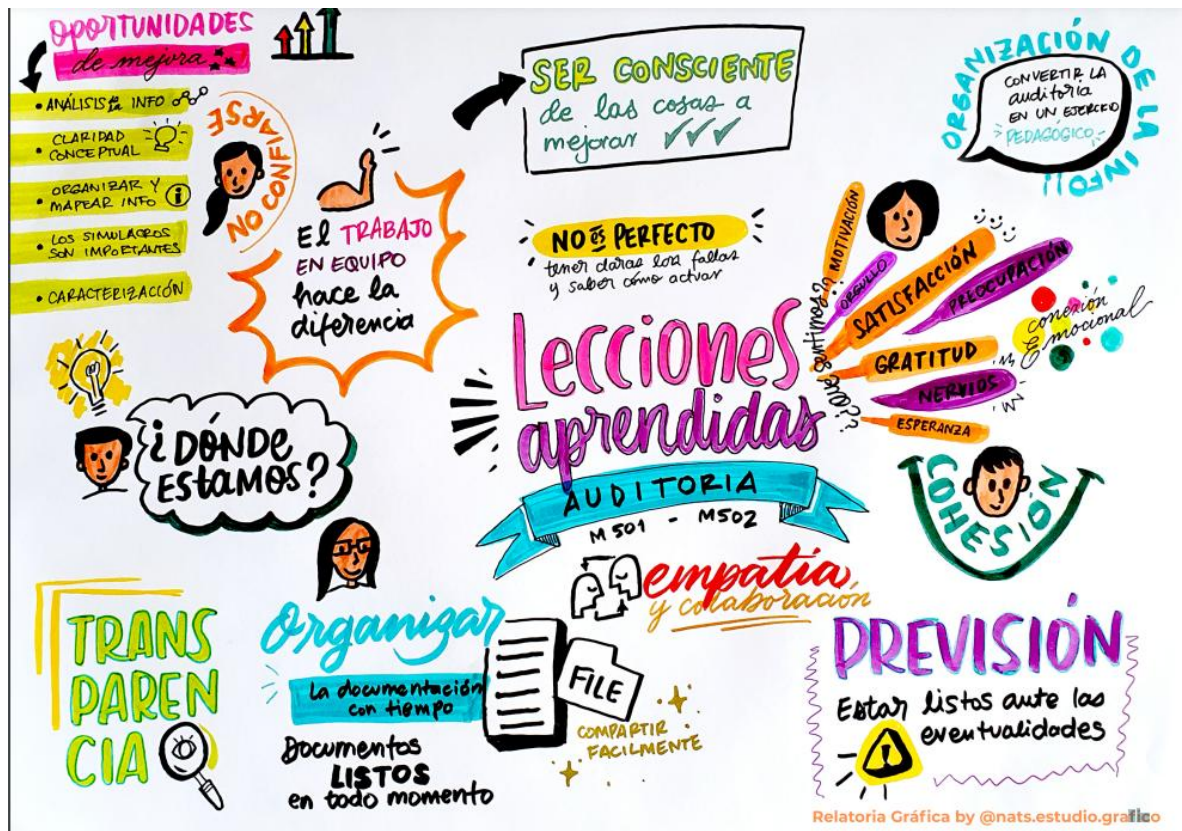 OPORTUNIDADES
de mejora
• ANÁLISIS DE LA INFO
• CLARIDAD
CONCEPTUAL
• ORGANIZAR Y
MAPEAR INFO
i
• LOS SIMULACROS
SON IMPORTANTES
• CARACTERIZACIÓN
NO CONFIARSE
El TRABAJO
EN EQUIPO
hace la
diferencia
SER CONSCIENTE
de las cosas a
mejorar
NO ES PERFECTO
tener claras las fallas
y saber cómo actuar
ORGANIZACIÓN DE LA INFO!!
CONVERTIR LA
auditoría
EN UN EJERCICIO
PEDAGÓGICO
¿QUÉ sentimos?
MOTIVACIÓN
ORGULLO
SATISFACCIÓN
PREOCUPACIÓN
GRATITUD
NERVIOS
ESPERANZA
conexión
Emocional
Lecciones
aprendidas
AUDITORIA
M501 - M502
¿DÓNDE
EstaMos?
COHESIÓN
empatía
y colaboración
TRANS
PAREN
CIA
Organizar
La documentación
con tiempo
Documentos
LISTOS
en todo momento
FILE
COMPARTIR
FACILMENTE
PREVISIÓN
Estar listos ante las
eventualidades
!
Relatoria Gráfica by @nats.estudio.grafico